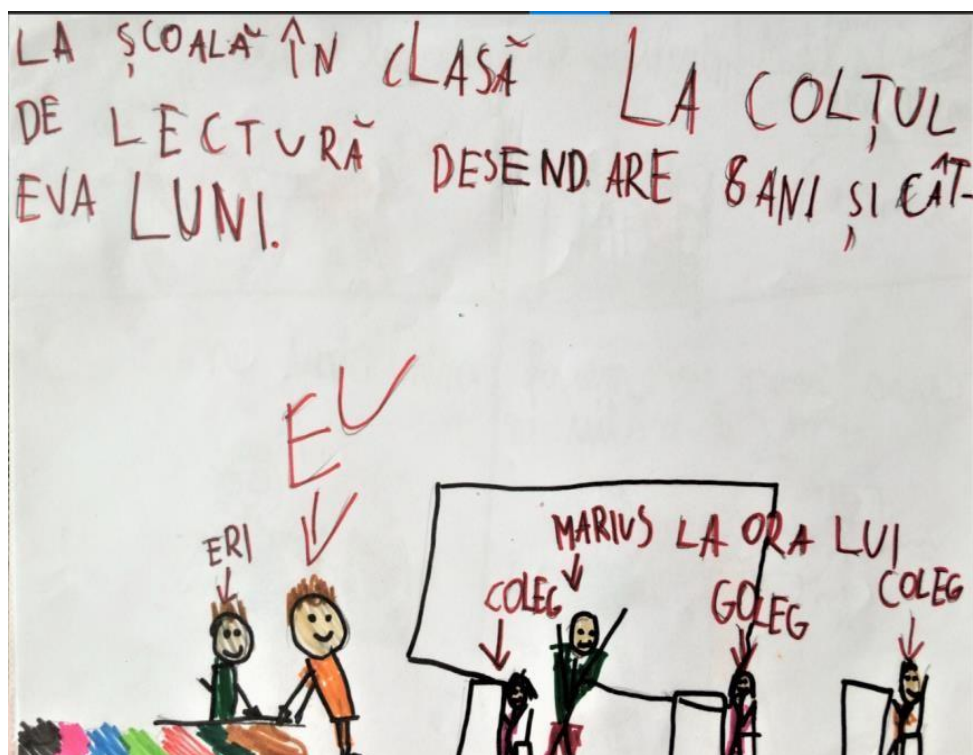 LA ȘCOALĂ ÎN CLASĂ LA COLȚUL
DE LECTURĂ DESENDARE 8 ANI ȘI CÂT-
EVA LUNI.
EU
ERI
MARIUS LA ORA LUI
COLEG
GOLEG
COLEG